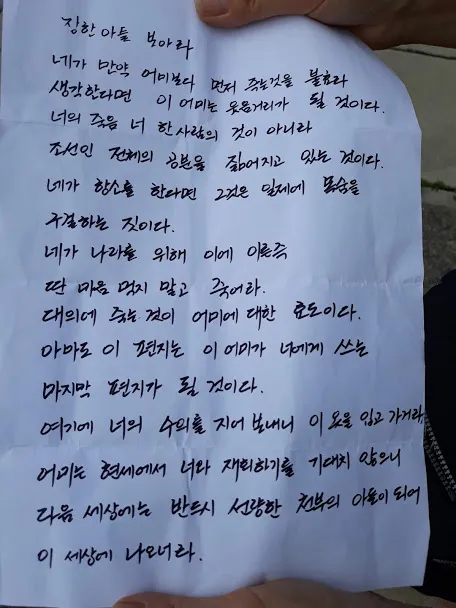 장한아들 보아라
네가 만약 어미보다 먼저 죽는것을 불효라
생각한다면 이 어미는 웃음거리가 될 것이다.
너의 죽음 너 한사람의 것이 아니라
조선인 전체의 공분을 짊어지고 있는 것이다.
네가 항소를 한다면 그것은 일제에 목숨을
구걸하는 짓이다.
네가 나라를 위해 이에 이른즉
딴 마음 먹지 말고 죽어라.
대의에 죽는것이 어미에 대한 효도이다.
아마도 이 편지는 이 어미가 너에게 쓰는
마지막 편지가 될 것이다.
여기에 너의 수의를 지어 보내니 이 옷을 입고 가거라
어미는 현세에서 너와 재회하기를 기대치 않으니
다음 세상에는 반드시 선량한 천부의 아들이 되어
이 세상에 나오너라.